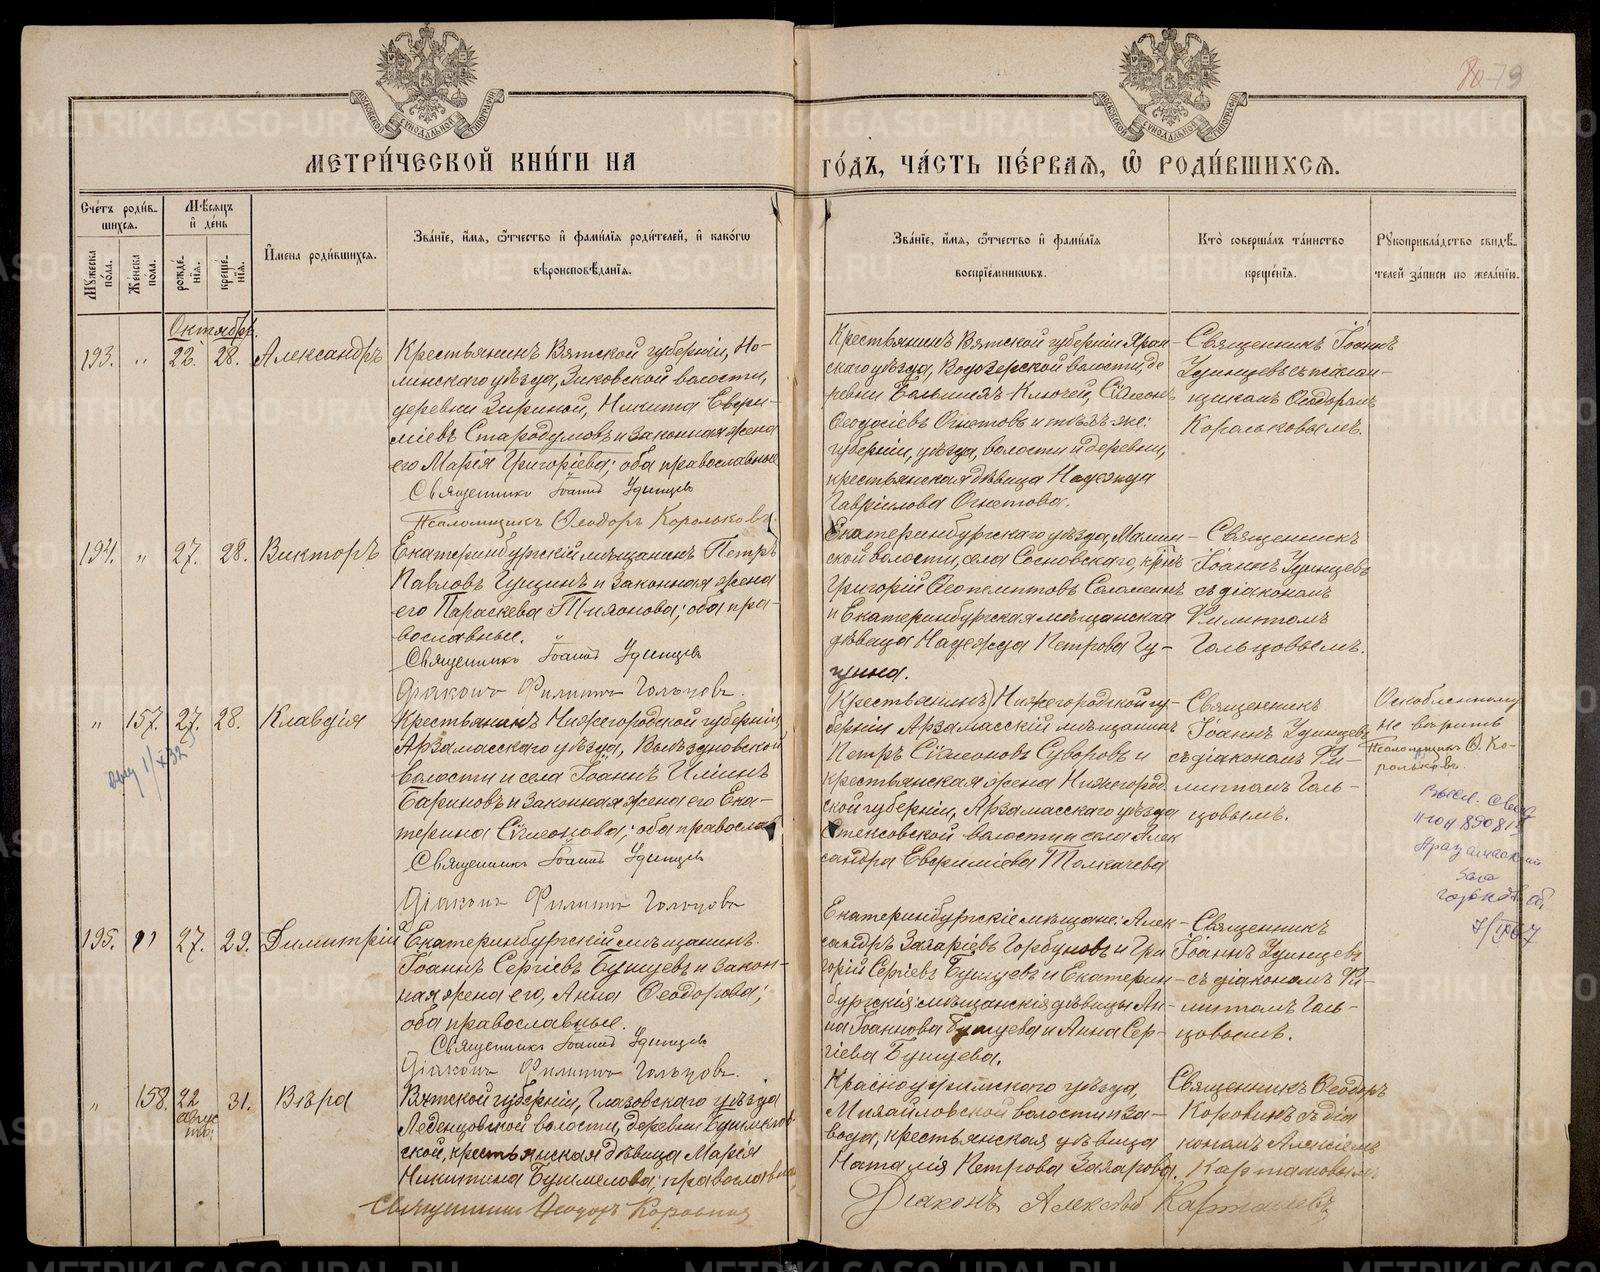 80 79
МОСКОВСКОЙ СѴНОДАЛЬНОЙ ТИПОГРАФІИ
МОСКОВСКОЙ СѴНОДАЛЬНОЙ ТИПОГРАФІИ
МЕТРИ́ЧЕСКОЙ КНИ́ГИ НА
ГО́ДЪ, ЧА́СТЬ ПЕ́РВАЯ, Ѡ҆ РОДИ́ВШИХСЯ.
Сче́тъ роди́вшихся.
Мꙋ́жеска по́ла.
Же́нска по́ла.
Мѣ́сяцъ и҆ де́нь
рожде́нїя.
креще́нїя.
И҆мена̀ роди́вшихся.
Зва́нїе, и҆́мя, ѻ҆́тчество и҆ фами́лїя роди́телей, и҆ како́гѡ
вѣроисповѣ́данїя.
Зва́нїе, и҆́мя, ѻ҆́тчество и҆ фами́лїя
воспрїе́мникѡвъ.
Кто̀ соверша́лъ та́инство
креще́нїя.
Рꙋкоприкла́дство свидѣ́телей за́писи по жела́нїю.
Октябрь.
193. „ 22. 28. Александръ
Крестьянинъ Вятской губерніи, Но-
линскаго уѣзда, Зиковской волости,
деревни Зириной, Никита Евфи-
міевъ Стародумовъ и законная жена
его Марія Григоріева; оба православные
Священникъ Іоаннъ Удинцевъ
Псаломщикъ Ѳеодоръ Корольковъ.
Крестьянинъ Вятской губерніи Яран-
скаго уѣзда, Водозерской волости, де
ревни Большихъ Ключей, Сѵмеонъ
Ѳеодосіевъ Огнетовъ и тѣхъ же:
губерніи, уѣзда, волости и деревни,
крестьянская дѣвица Надежда
Гавріилова Огнетова.
Священникъ Іоаннъ
Удинцевъ съ псалом-
щикомъ Ѳеодоромъ
Корольковымъ.
194. „ 27. 28. Викторъ
Екатеринбургскій мѣщанинъ Петръ
Павловъ Гущинъ и законная жена
его Параскева Тихонова; оба пра-
вославные.
Священникъ Іоаннъ Удинцевъ
Діаконъ Филиппъ Гольцовъ.
Екатеринбургскаго уѣзда, Мамин-
ской волости, села Сосновскаго, кр-нъ
Григорій Ѳеопемптовъ Саламеинъ
и Екатеринбургская мѣщанская
дѣвица Надежда Петрова Гу-
щина.
Священникъ
Іоаннъ Удинцевъ
съ діакономъ
Филиппомъ
Гольцовымъ.
„ 157. 27. 28. Клавдія
Крестьянинъ Нижегородской губерніи
Арзамасскаго уѣзда, Выѣздновской
волости и села Іоаннъ Иліинъ
Бариновъ и законная жена его Ека-
терина Сѵмеонова; оба православ.
Священникъ Іоаннъ Удинцевъ
Діаконъ Филиппъ Гольцовъ
Крестьянинъ) Нижегородской гу-
берніи Арзамасскій мѣщанинъ
Петръ Сѵмеоновъ Суворовъ и
крестьянская жена Нижегород-
ской губерніи, Арзамасскаго уѣзда
Стексовской волости и села Алек
сандра Евфиміева Толкачева
Священникъ
Іоаннъ Удинцевъ
съ діакономъ Фи-
липпомъ Голь-
цовымъ.
Оскобленному
не вѣрить
Псаломщикъ Ѳ. Ко-
рольковъ.
195. „ 27. 29. Димитрій
Екатеринбургскій мѣщанинъ
Іоаннъ Сергіевъ Бушуевъ и закон-
ная жена его, Анна Ѳеодорова;
оба православные.
Священникъ Іоаннъ Удинцевъ
Діаконъ Филиппъ Гольцовъ.
Екатеринбургскіе мѣщане: Алек-
сандръ Захаріевъ Горбуновъ и Гри
горій Сергіевъ Бушуевъ и Екатерин-
бургскія мѣщанскія дѣвицы Ан-
на Іоаннова Бушуева и Анна Сер-
гіева Бушуева.
Священникъ
Іоаннъ Удинцевъ
съ діакономъ Фи-
липпомъ Голь-
цовымъ.
„ 158. 22 августа 31. Вѣра
Вятской губерніи, Глазовскаго уѣзда
Леденцовской волости, деревни
ской, крестьянская дѣвица Марія
Никитина Бушмелова; православная
Священникъ Ѳеодоръ Коровинъ
Красноуфимскаго уѣзда,
Михайловской волости и за-
вода, крестьянская дѣвица
Наталія Петрова Захарова.
Священникъ Ѳеодоръ
Коровинъ съ діа
кономъ Алексіемъ
Карташовымъ
Діаконъ Алексѣй Карташевъ